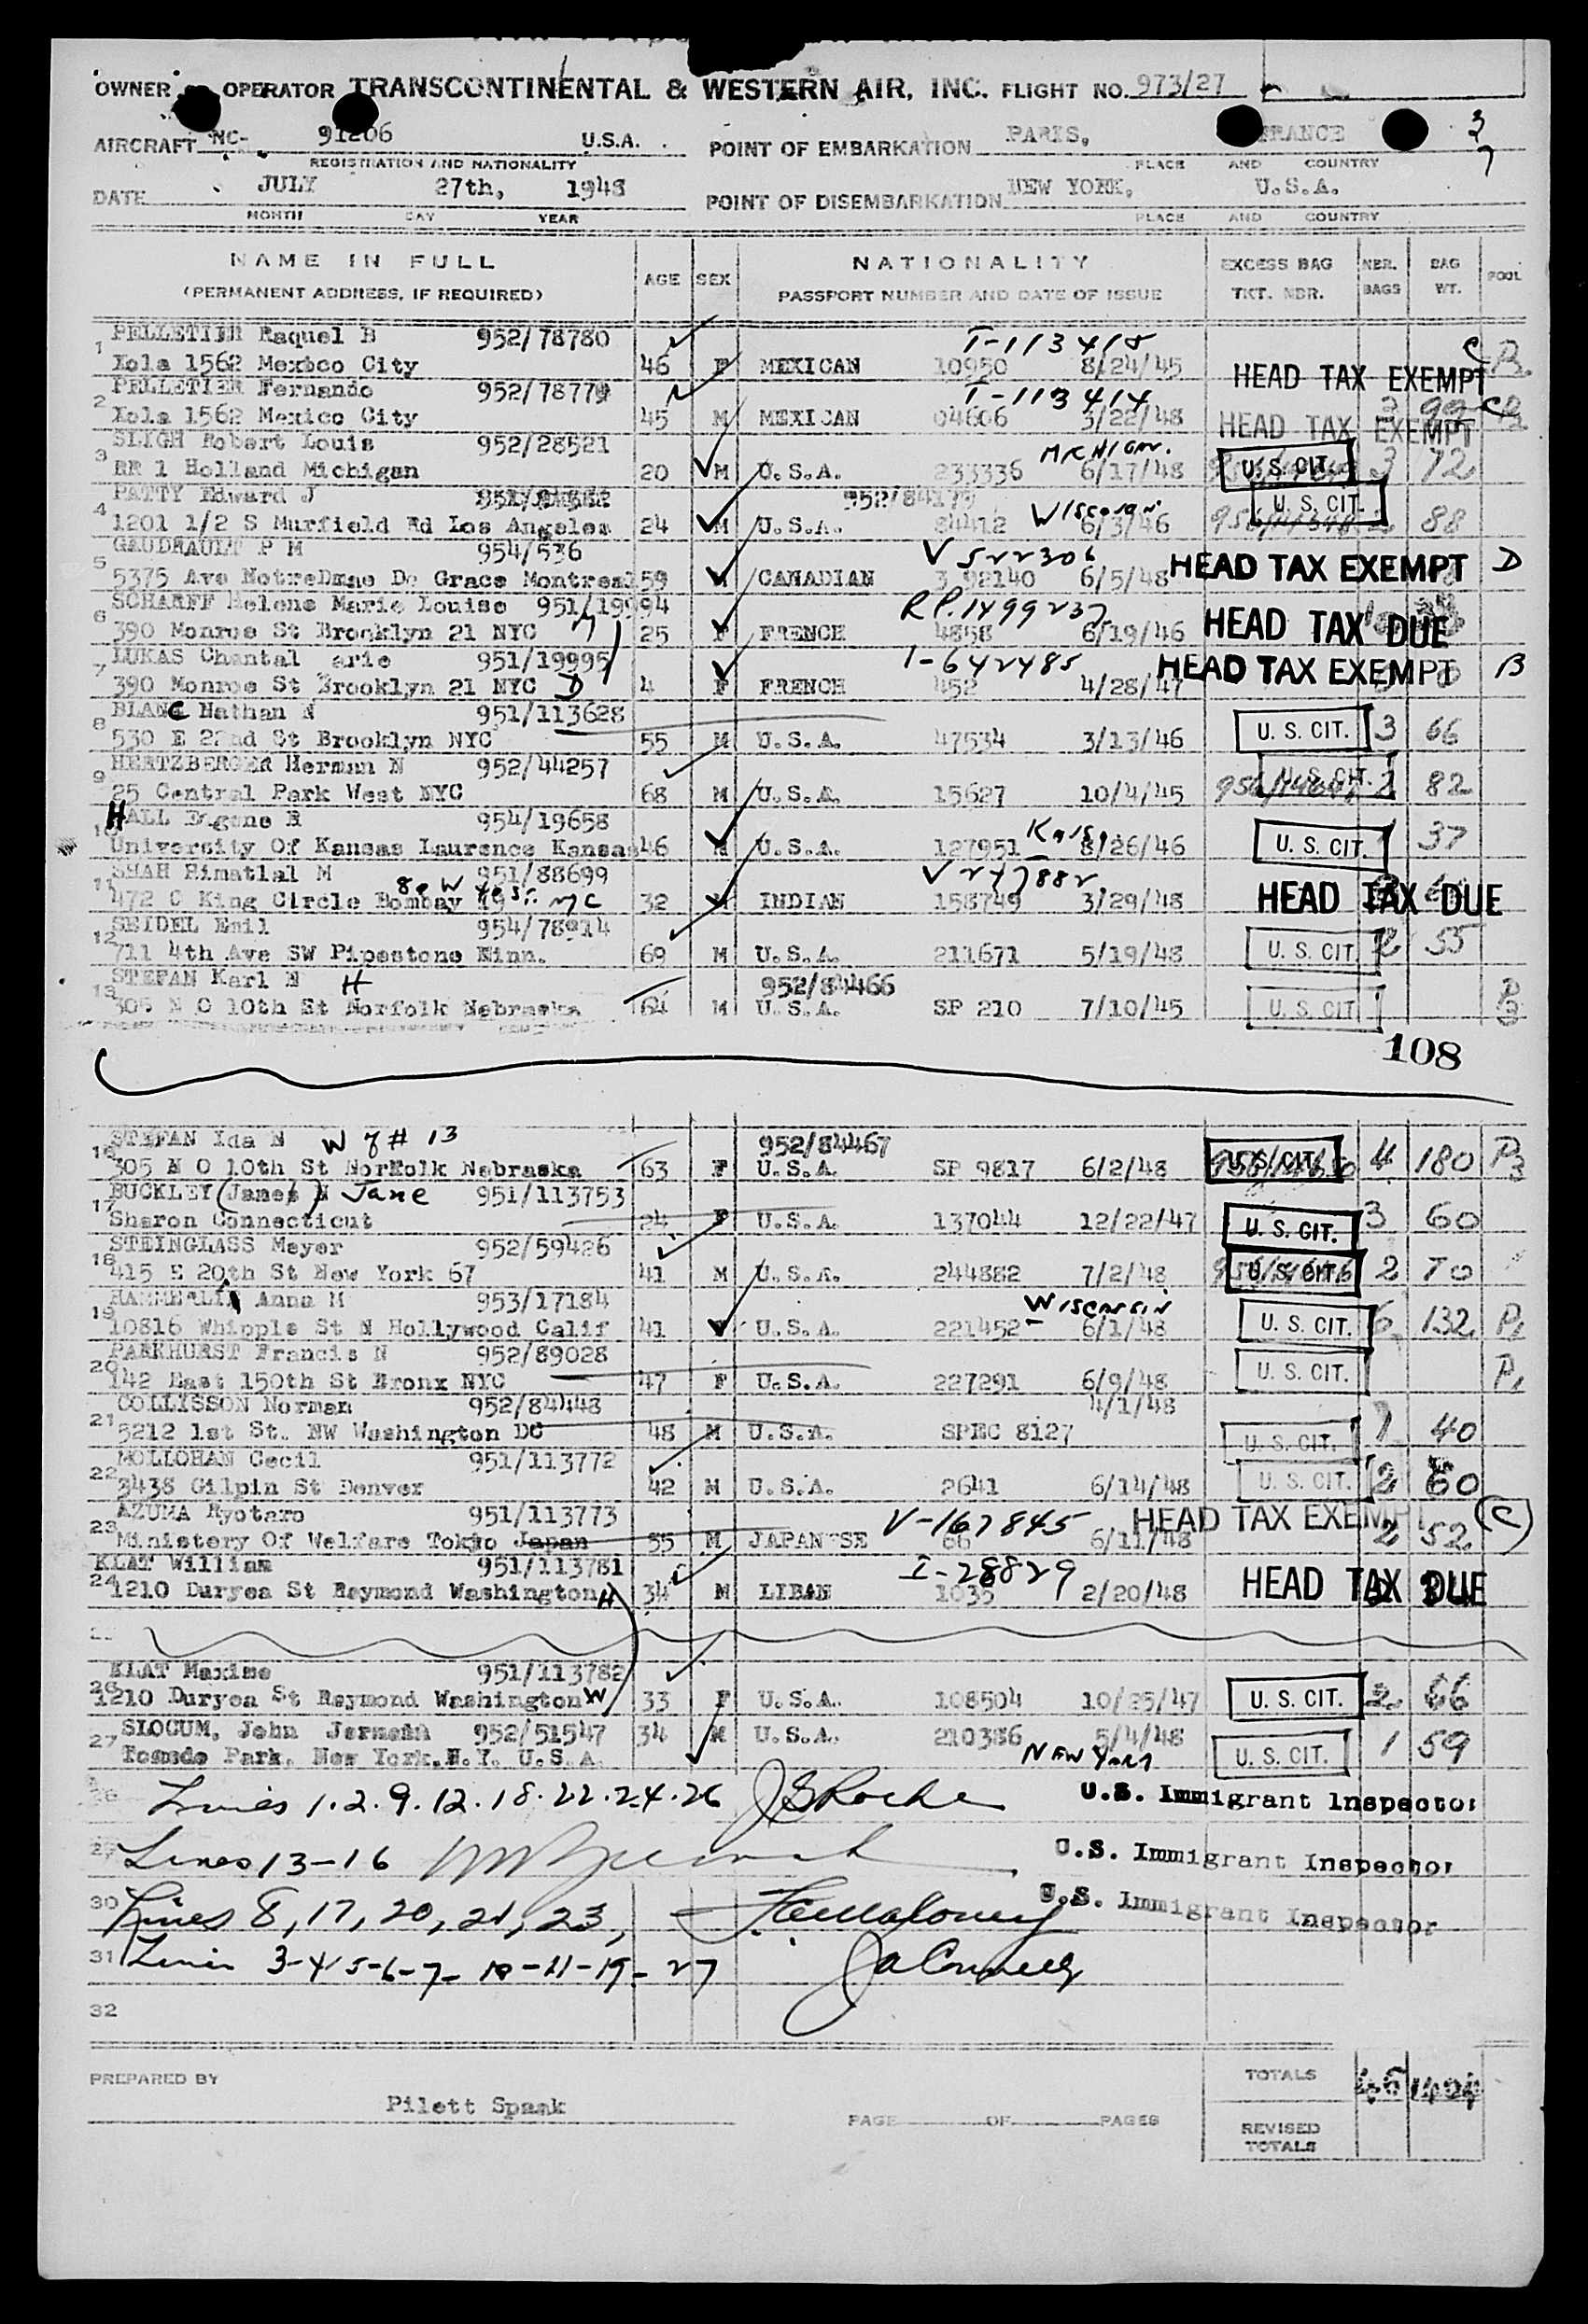 OWNER OPERATOR TRANSCONTINENTAL & WESTERN AIR, INC. FLIGHT NO. 973/27
AIRCRAFT NC- 91206 U.S.A. POINT OF EMBARKATION PARIS, FRANCE
REGISTRATION AND NATIONALITY PLACE AND COUNTRY
DATE JULY 27th, 1948 POINT OF DISEMBARKATION NEW YORK, U.S.A.
MONTH DAY YEAR PLACE AND COUNTRY
NAME IN FULL AGE SEX NATIONALITY EXCESS BAG NBR. BAG POOL
(PERMANENT ADDRESS, IF REQUIRED) PASSPORT NUMBER AND DATE OF ISSUE TKT. NBR. BAGS WT.
PELLETIER Raquel B 952/78780 I-113418
1 Xola 1562 Mexico City 46 F MEXICAN 10950 8/24/45 HEAD TAX EXEMPT C
PELLETIER Fernando 952/78779 I-113414
2 Xola 1562 Mexico City 45 M MEXICAN 04606 3/22/48 HEAD TAX EXEMPT 99 C
SLIGH Robert Louis 952/28521 MICHIGAN.
3 RR 1 Holland Michigan 20 M U.S.A. 233336 6/17/48 U. S. CIT. 3 72
PATTY Edward J 952/84179
4 1201 1/2 S Murfield Rd Los Angeles 24 M U.S.A. 84412 Wisconsin 6/3/46 U. S. CIT. 2 88
GAUDRAULT P M 954/536 V522306
5 5375 Ave NotreDmae De Grace Montreal 59 M CANADIAN 3 92140 6/5/48 HEAD TAX EXEMPT D
SCHARFF Helene Marie Louise 951/19994 R.P.1499237
6 390 Monroe St Brooklyn 21 NYC M 25 F FRENCH 4858 6/19/46 HEAD TAX DUE
LUKAS Chantal arie 951/19995 I-642485
7 390 Monroe St Brooklyn 21 NYC D 4 F FRENCH 452 4/28/47 HEAD TAX EXEMPT B
BLANC Nathan N 951/113628
8 530 E 22nd St Brooklyn NYC 55 M U.S.A. 47534 3/13/46 U. S. CIT. 3 66
HERTZBERGER Herman N 952/44257
9 25 Central Park West NYC 68 M U.S.A. 15627 10/4/45 U. S. CIT. 2 82
HALL Eugene R 954/19658
10 University Of Kansas Laurence Kansas 46 M U.S.A. 127951 8/26/46 U. S. CIT. 37
SHAH Himatlal M 951/88699 V247882
11 472 C King Circle Bombay 19 NYC 32 M INDIAN 158749 3/29/48 HEAD TAX DUE
SEIDEL Emil 954/78914
12 711 4th Ave SW Pipestone Minn. 69 M U.S.A. 211671 5/19/48 U. S. CIT. 2 55
STEFAN Karl N H 952/84466
13 305 N O 10th St Norfolk Nebraska 64 M U.S.A. SP 210 7/10/45 U. S. CIT. P3
108
STEFAN Ida N W of # 13 952/84467
16 305 N O 10th St Norfolk Nebraska 63 F U.S.A. SP 9817 6/2/48 U. S. CIT. 4 180 P3
BUCKLEY (James) N Jane 951/113753
17 Sharon Connecticut 24 F U.S.A. 137044 12/22/47 U. S. CIT. 3 60
STEINGLASS Meyer 952/59426
18 415 E 20th St New York 67 41 M U.S.A. 244882 7/2/48 U. S. CIT. 2 70
HAMMERLI Anna M 953/17184 Wisconsin
19 10816 Whipple St N Hollywood Calif 41 F U.S.A. 221452 6/1/48 U. S. CIT. 6 132 P1
PARKHURST Francis N 952/89028
20 142 East 150th St Bronx NYC 47 F U.S.A. 227291 6/9/48 U. S. CIT. P1
COLLISSON Norman 952/84448 4/1/48
21 5212 1st St. NW Washington DC 48 M U.S.A. SPEC 8127 U. S. CIT. 1 40
MOLLOHAN Cecil 951/113772
22 3438 Gilpin St Denver 42 M U.S.A. 2641 6/14/48 U. S. CIT. 2 60
AZUMA Ryotaro 951/113773 V-167845 HEAD TAX EXEMPT C
23 Ministery Of Welfare Tokio Japan 55 M JAPANESE 66 6/11/48 2 52
KLAT William 951/113781 I-28829
24 1210 Duryea St Raymond Washington H 34 M LIBAN 1035 2/20/48 HEAD TAX DUE
KLAT Maxine 951/113782
26 1210 Duryea St Raymond Washington W 33 F U.S.A. 108504 10/25/47 U. S. CIT. 2 66
SLOCUM, John Jermain 952/51547 34 M U.S.A. 210386 5/4/48
27 Park. New York.N.Y. U.S.A. NEW YORK U. S. CIT. 1 59
28 Lines 1.2.9.12.18.22.24.26 J S Roche U.S. Immigrant Inspector
29 Lines 13-16 U.S. Immigrant Inspector
30 Lines 8, 17, 20, 21, 23, U.S. Immigrant Inspector
31 Lines 3-4 5-6-7- 10-11-19-27
32
PREPARED BY Pilett Spaak PAGE OF PAGES TOTALS
REVISED TOTALS